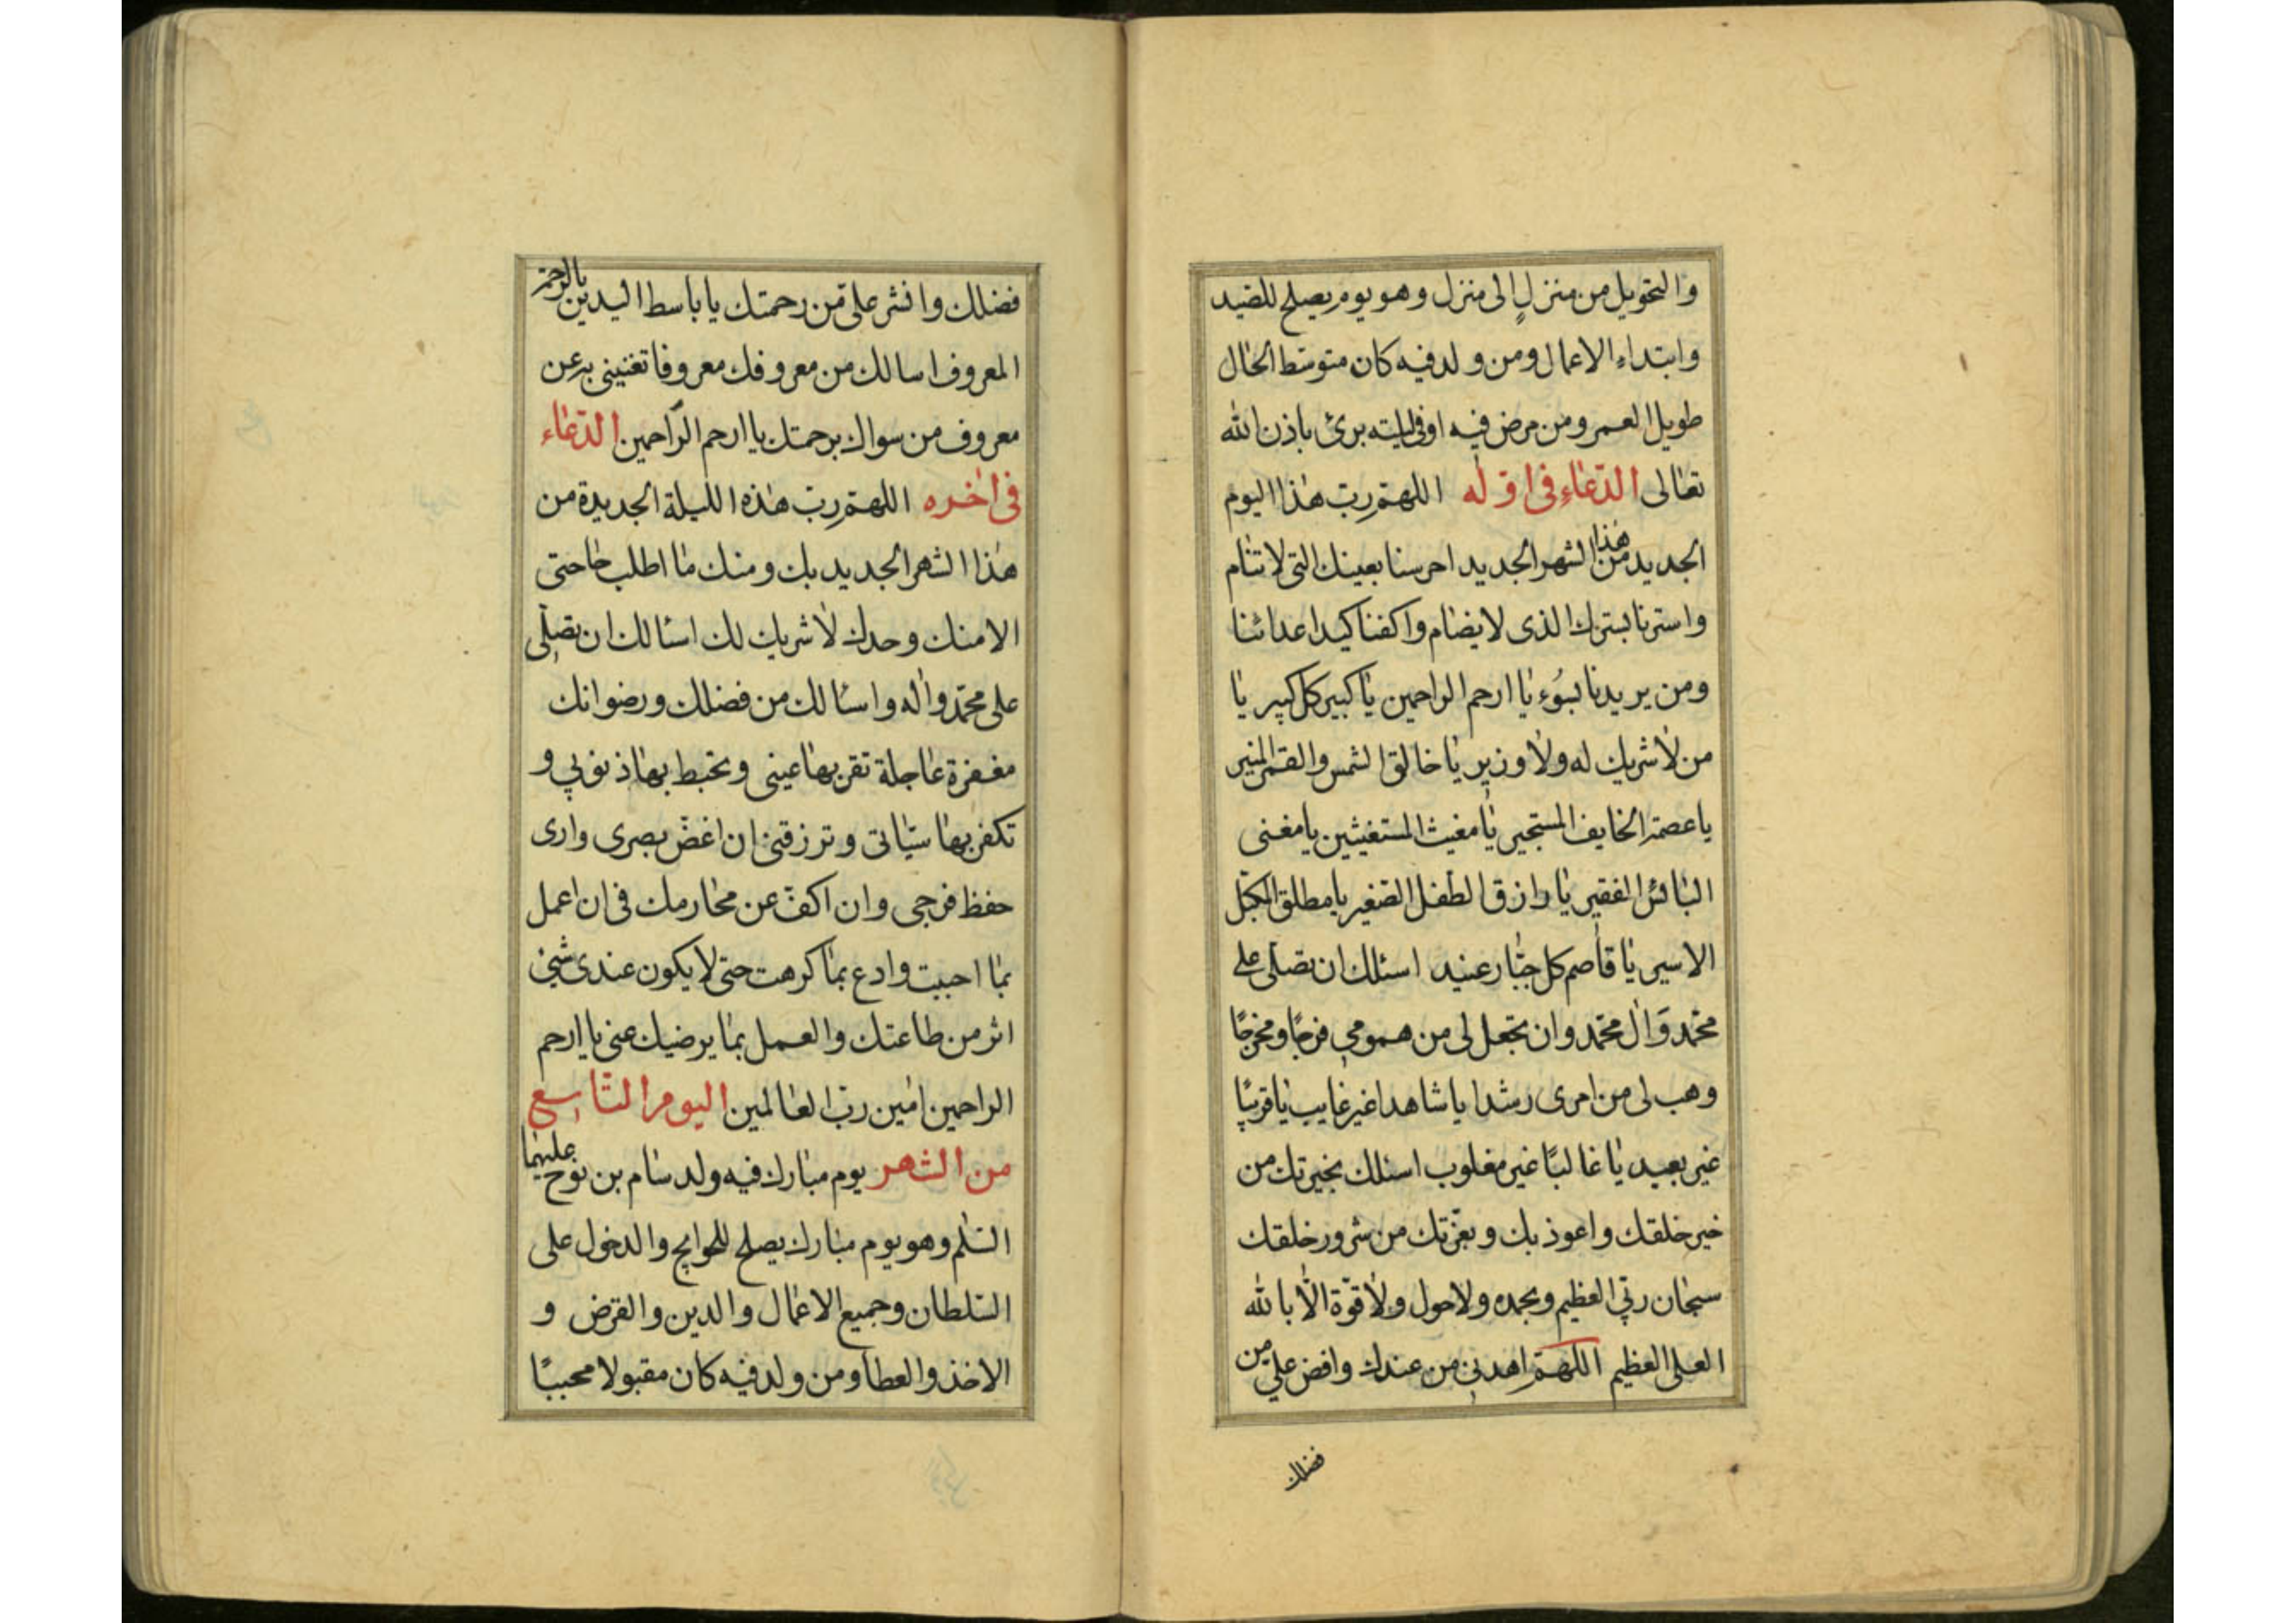 والتحويل من منزلٍ الى منزل وهو يوم يصلح للصيد
وابتداء الاعمال ومن ولد فيه كان متوسّط الحال
طويل العمر ومن مرض فيه اوفى ليلته برئ باذن الله
تعالى الدّعاء فى اوّله اللهمّ ربّ هذا اليوم
الجديد من هذا الشهر الجديد احرسنا بعينك التى لا تنام
واسترنا بسترك الذى لا يضام واكفنا كيد اعدائنا
ومن يريدنا بسُوء يا ارحم الراحمين يا كبير كل كبير يا
من لا شريك له ولا وزير يا خالق الشمس والقمر المنير
يا عصمة الخايف المستجير يا مغيث المستغيثين يا مغنى
البائس الفقير يا رازق الطّفل الصّغير يا مطلق المكبّل
الاسير يا قاصم كل جبّار عنيد اسئلك ان تصلّى على
محمّد وَال محمّد وان تجعل لى من همومي فرجًا ومخرجًا
وهب لى من امرى رشدا يا شاهدا غير غايب يا قريبًا
غير بعيد يا غالبًا غير مغلوب اسئلك بخيرتك من
خير خلقك واعوذ بك وبعزّتك من شرور خلقك
سبحان ربّي العظيم وبحمده ولا حول ولا قوّة الّا بالله
العلى العظيم اللهمّ اهدنى من عندك وافض علي من
فضلك
فضلك وانشر علىّ من رحمتك يا باسط اليدين بالرحمة
المعروف اسالك من معروفك معروفا تغنينى به عن
معروف من سواك برحمتك يا ارحم الرّاحمين الدّعاء
فى اخره اللهمّ ربّ هذه الليلة الجديدة من
هذا الشهر الجديد بك ومنك ما اطلب حاجتى
الا منك وحدك لا شريك لك اسئالك ان تصلّى
على محمّد واله واسئالك من فضلك ورضوانك
مغفرة عاجلة تقرّ بها عينى وتحبط بها ذنوبي و
تكفر بها سيّاتى وترزقنى ان اغضّ بصرى وارى
حفظ فرجى وان اكفّ عن محارمك فى ان اعمل
بما احببت وادع بما كرهت حتى لا يكون عندى شئ
اثر من طاعتك والعمل بما يرضيك عنى يا ارحم
الراحمين امين ربّ العالمين اليوم التّاسع
من الشهر يوم مبارك فيه ولد سام بن نوح عليهما
السّلم وهو يوم مبارك يصلح للحوايج والدخول على
السّلطان وجميع الاعمال والدين والقرض و
الاخذ والعطا ومن ولد فيه كان مقبولا محببًا